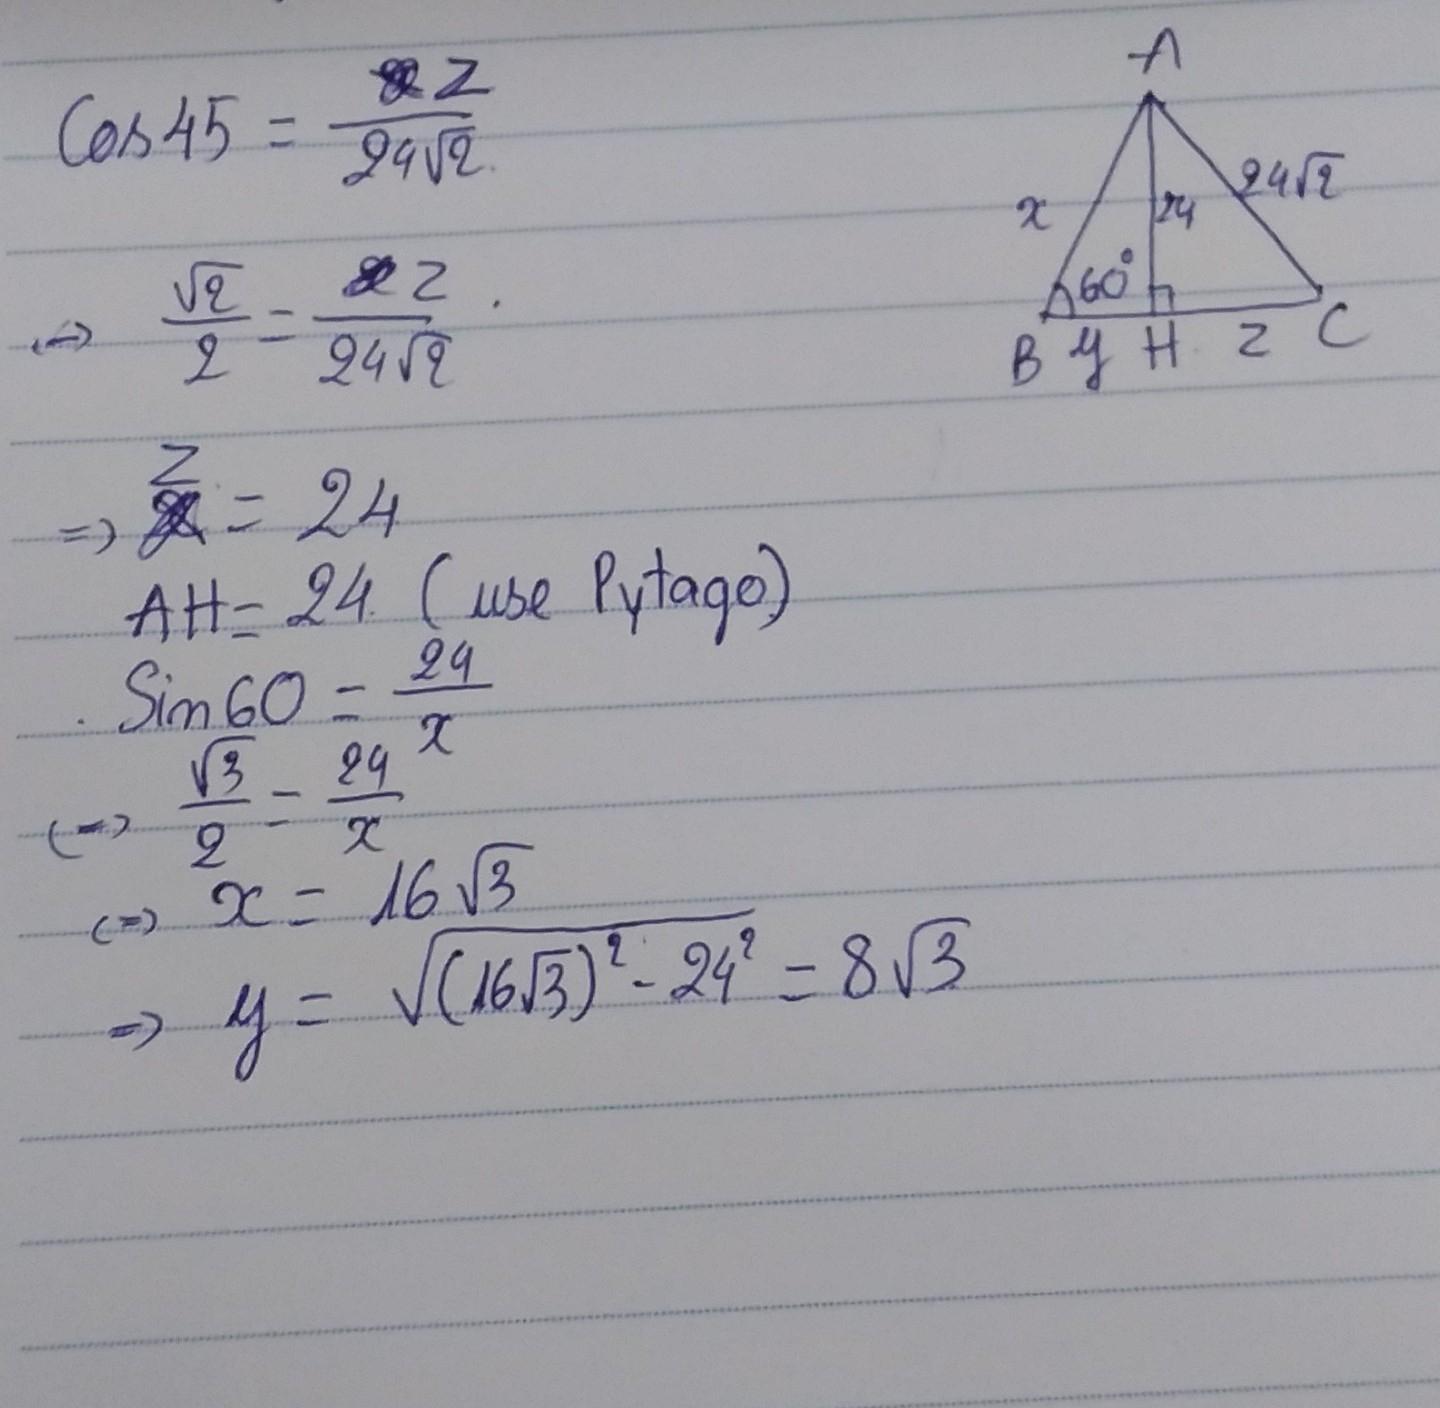 Cos45 = z/24√2
<=> √2/2 = z/24√2 .
=> z = 24
AH = 24 (use Pytago)
. Sin60 = 24/x
<=> √3/2 = 24/x
<=> x = 16√3
=> y = √((16√3)² - 24²) = 8√3
A
x
24
24√2
60°
B y H z C